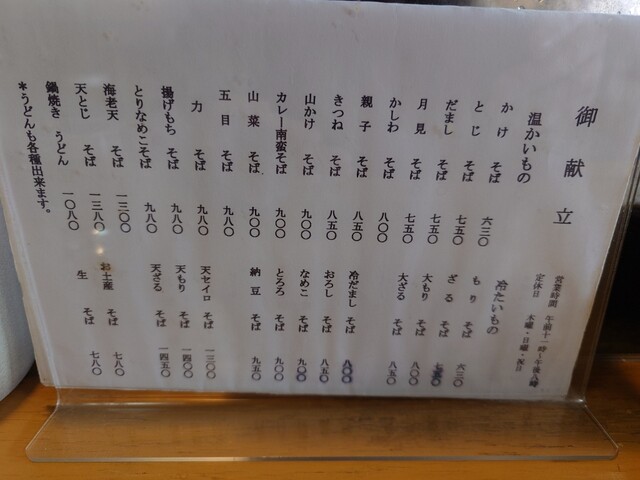 御献立
営業時間 午前十一時〜午後八時
定休日 木曜・日曜・祝日
温かいもの
かけ そば 六三〇
とじ そば 七五〇
だまし そば 七五〇
月見 そば 七五〇
かしわ そば 八〇〇
親子 そば 八五〇
きつね そば 八五〇
山かけ そば 九〇〇
カレー南蛮そば 九〇〇
山菜 そば 九〇〇
五目 そば 九八〇
力 そば 九八〇
揚げもち そば 九八〇
とりなめこそば 九八〇
海老天 そば 一三〇〇
天とじ そば 一三八〇
鍋焼き うどん 一〇八〇
*うどんも各種出来ます。
冷たいもの
もり そば 六三〇
ざる そば
大もり そば 八〇〇
大ざる そば 八五〇
冷だまし そば 八〇〇
おろし そば 八五〇
なめこ そば 九〇〇
とろろ そば 九〇〇
納豆 そば 九五〇
天セイロ そば 一三〇〇
天もり そば 一四〇〇
天ざる そば 一四五〇
お土産 そば 七八〇
生 そば 七八〇